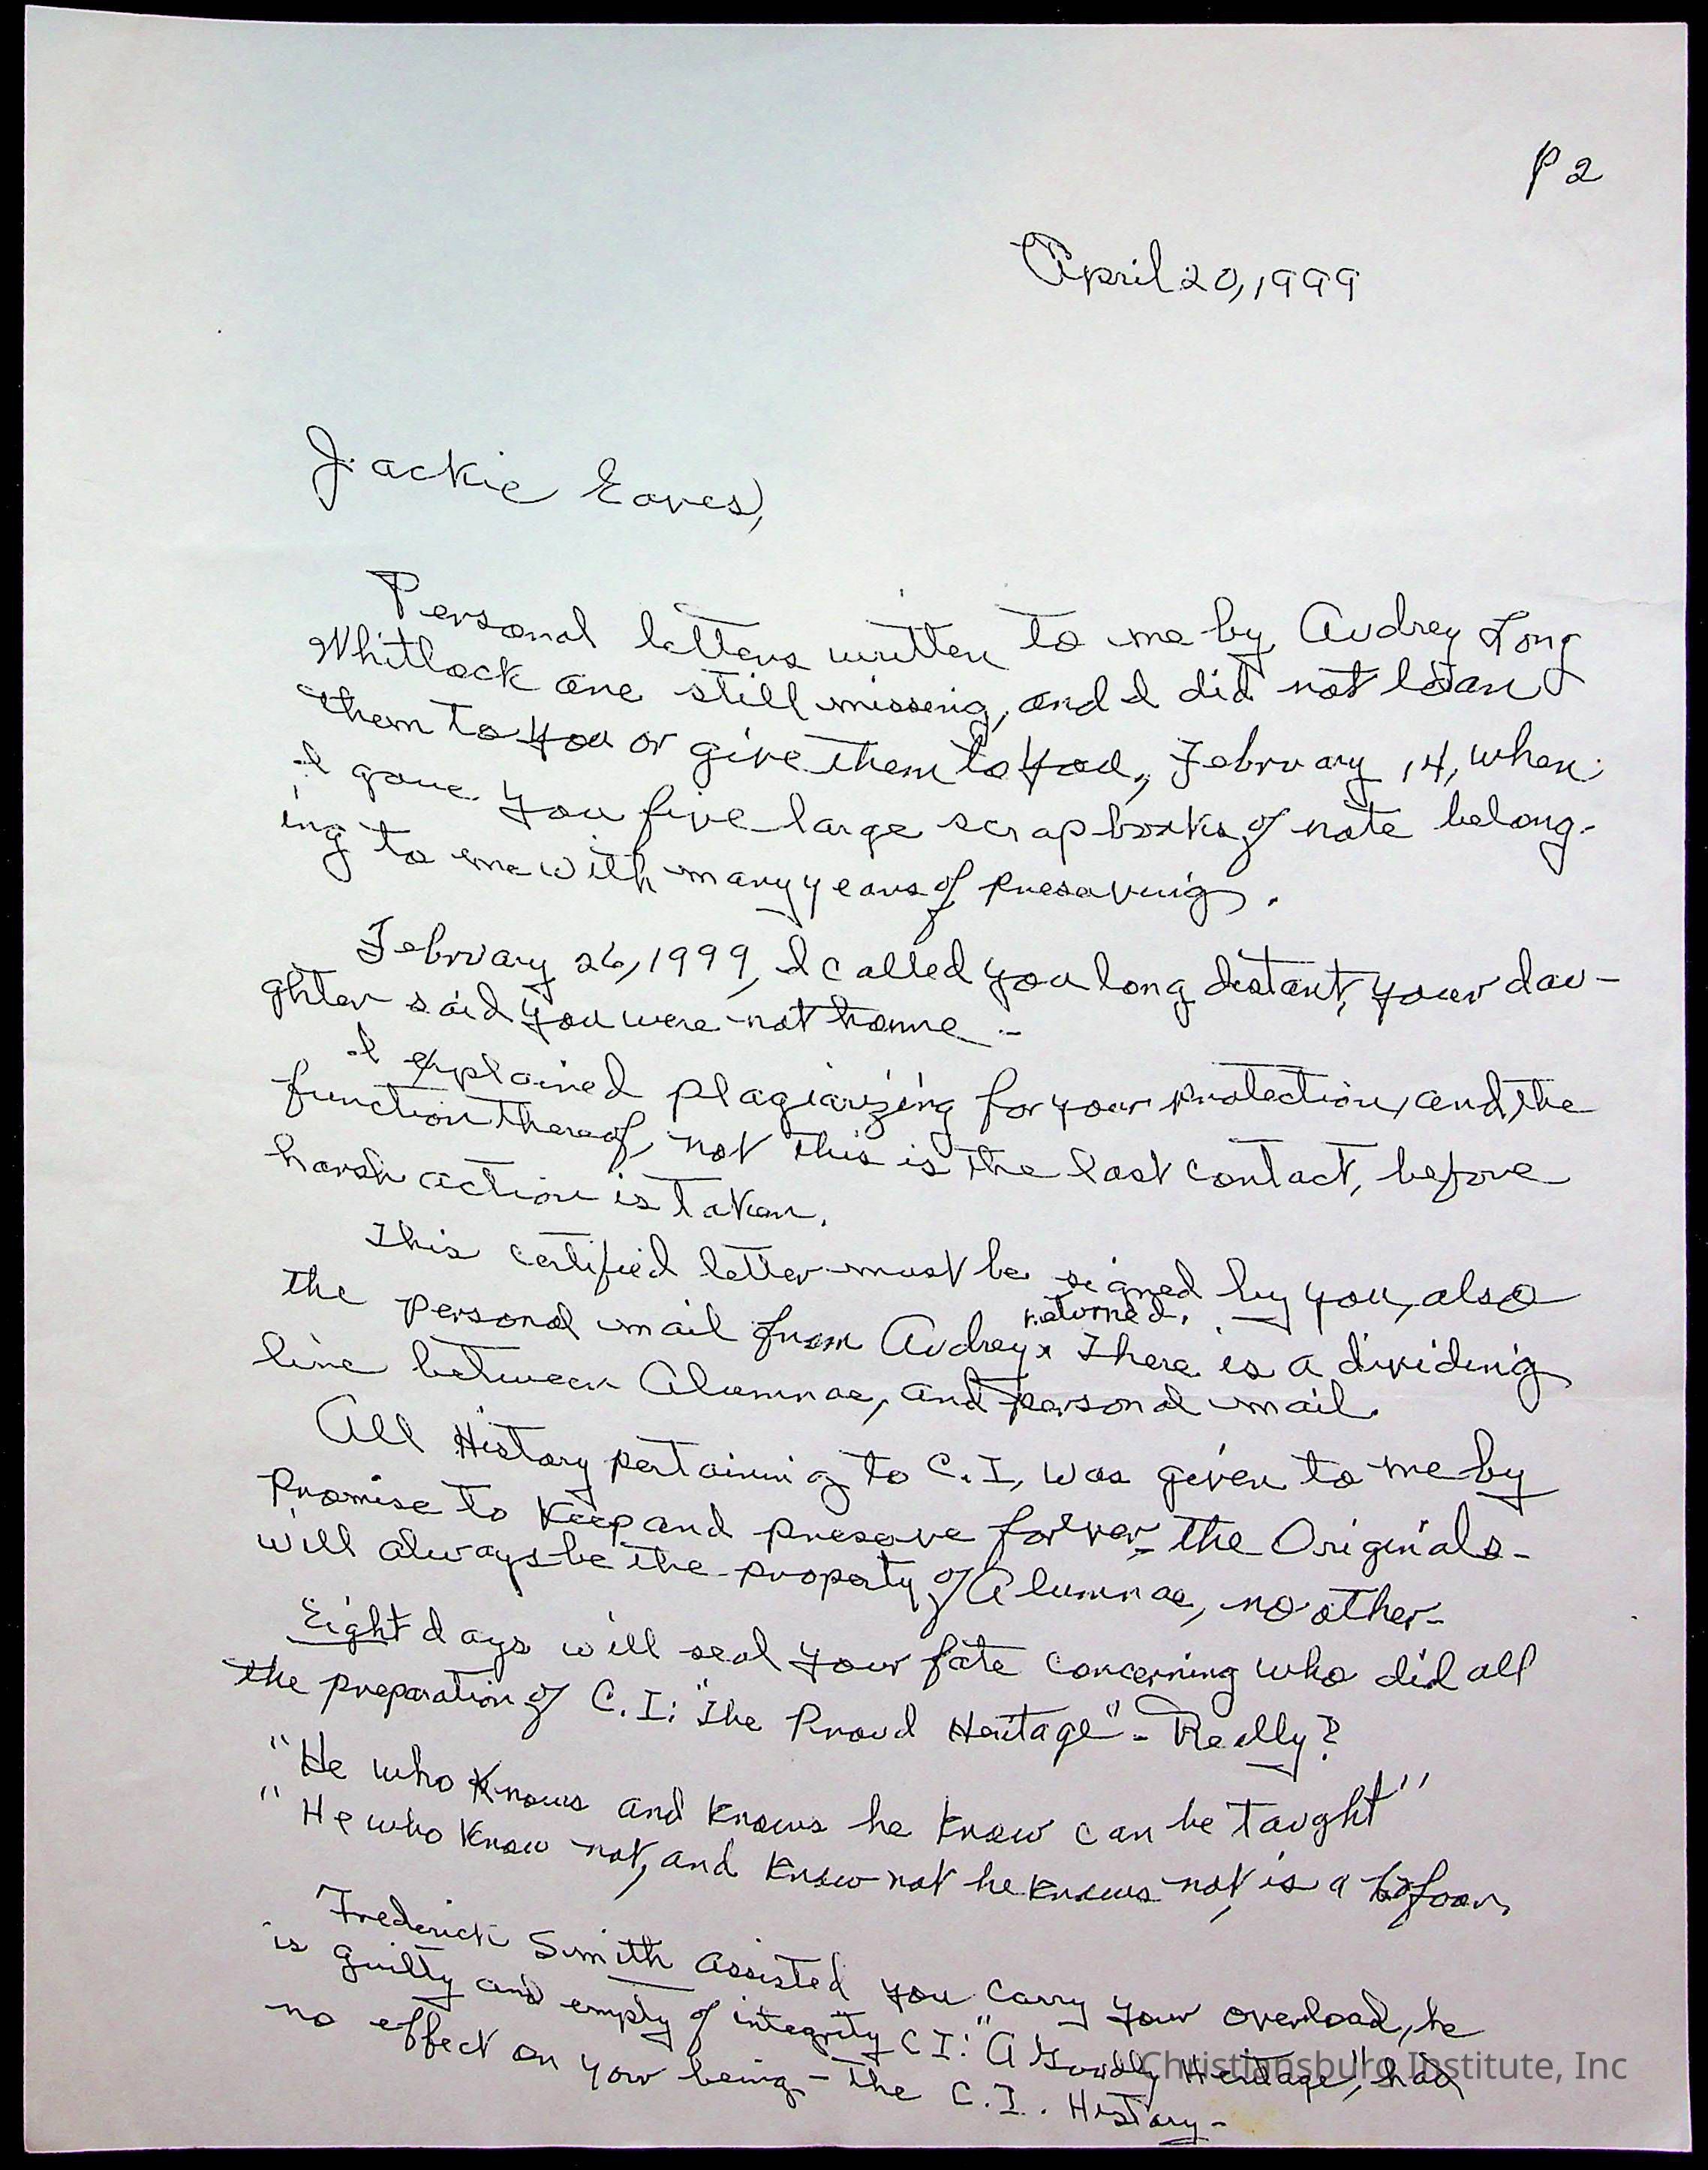 P 2
April 20, 1999
Jackie Eaves,
Personal letters written to me by Audrey Long
Whitlock are still missing, and I did not loan
them to you or give them to you, February 14, when
I gave you five large scrapbooks of note belong-
ing to me with many years of preserving.
February 26, 1999, I called you long distant, your dau-
ghter said you were not home -
I explained plagiarizing for your protection, and the
function thereof, not this is the last contact, before
harsh action is taken.
This certified letter must be signed by you, also
returned.
the personal mail from Audrey x There is a dividing
line between Alumnae, and personal mail.
All History pertaining to C.I. was given to me by
Promise to keep and preserve forever - the Originals -
will always be the property of Alumnae, no other -
Eight days will seal your fate concerning who did all
the preparation of C.I: "The Proud Heritage" - Really?
"He who knows and knows he know can be taught"
"He who know not, and know not he knows not, is a
Frederick Smith assisted you carry your overload, he
is guilty and empty of integrity C I: "A Goodly Heritage", had
no effect on your being - the C.I. History -
Christiansburg Institute, Inc